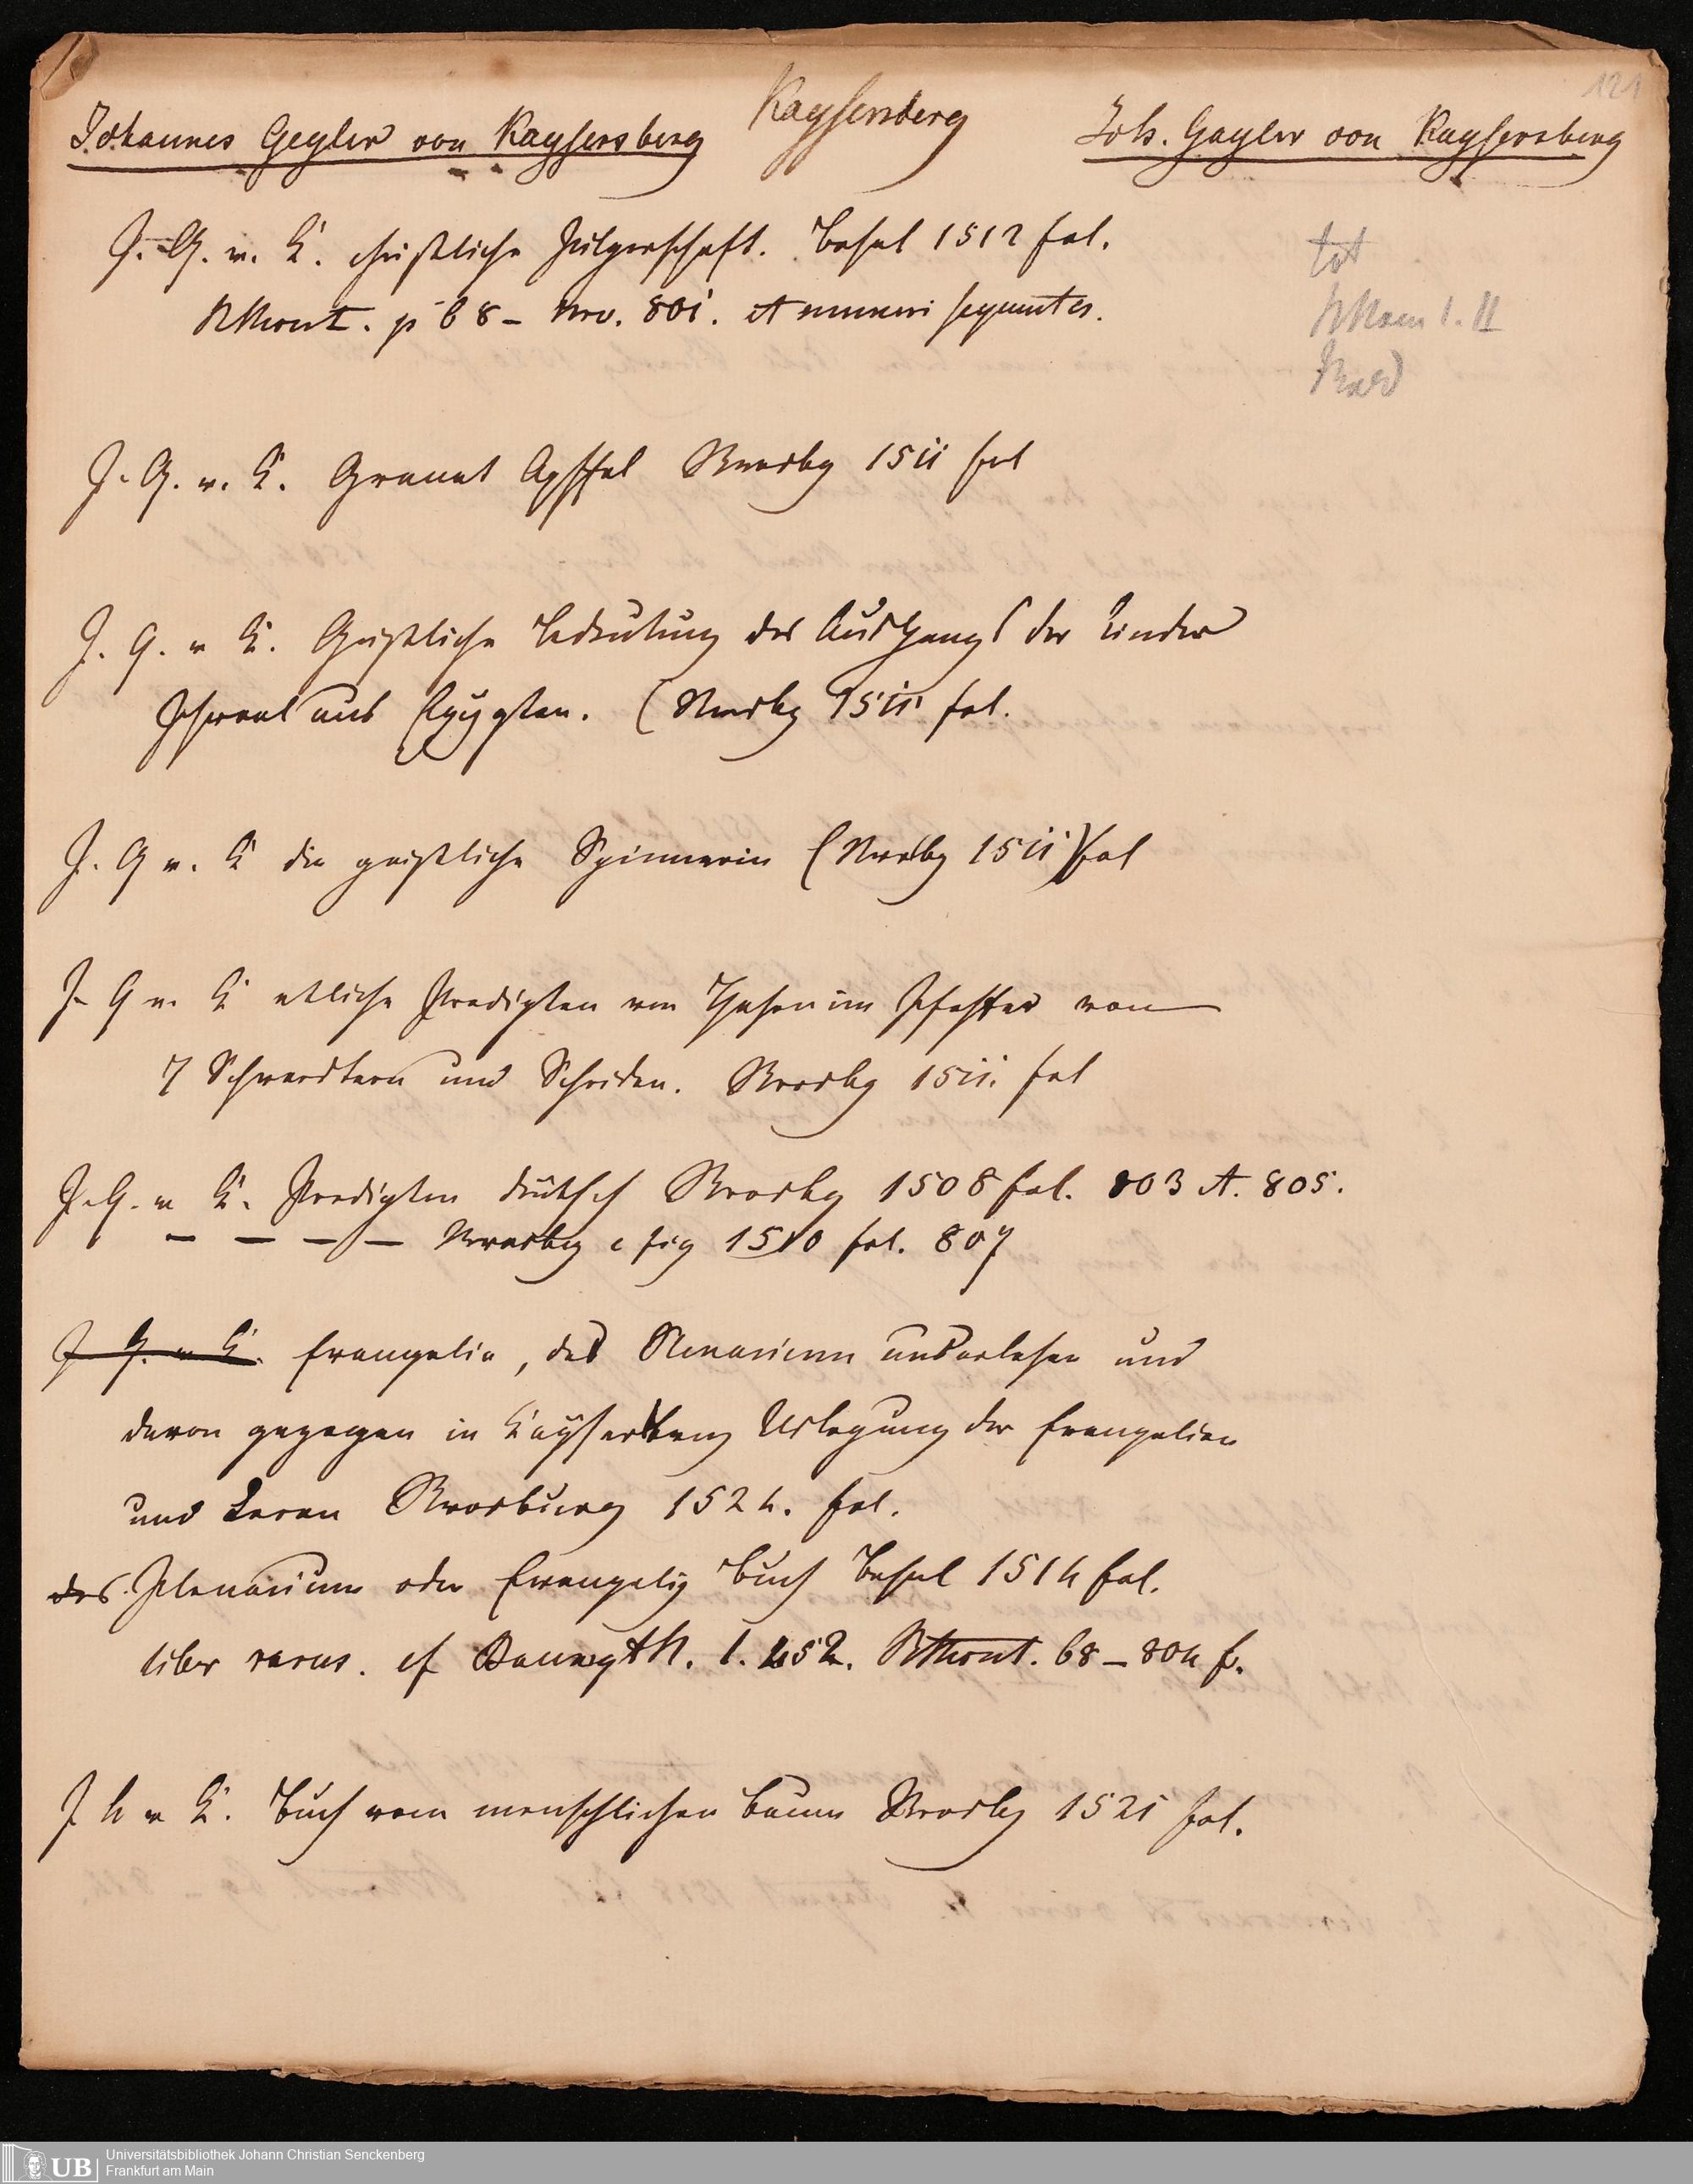 121
Johannes Geyler von Kaysersberg Kaysersberg Joh. Gayler von Kaysersberg
J. G. v. K. christliche Pilgerschaft. Basel 1512 fol.
p 68 - Nro. 801. et numeri sequentes.
tot
I. II
J. G. v. K. Granat Apffel Strasbg 1511 fol
J. G. v K. Geistliche Bedeutung des Ausgangs der Kinder
Jsrael aus Egypten. (Strasbg 1511 fol.
J. G v. K die geistliche Spinnerin (Strasbg 1511) fol
J. G v. K etliche Predigten von Hasen im Pfeffer von
7 Schwerdtern und Scheiden. Strasbg 1511. fol
J. G. v K. Predigten deutsch Strasbg 1508 fol. 803 et. 805.
— — — — Strasbg c fig 1510 fol. 807
J G. v K. Evangelia, das Plenarium auserlesen und
davon gezogen in Kaysersberg Uslegung der Evangelien
und Leren Strasburg 1524. fol.
das Plenarium oder Evangely Buch Basel 1514 fol.
liber rarus. cf I. 68 - 804 f.
J G v K. Buch vom menschlichen Baum Strasbg 1521 fol.
UB
Universitätsbibliothek Johann Christian Senckenberg
Frankfurt am Main